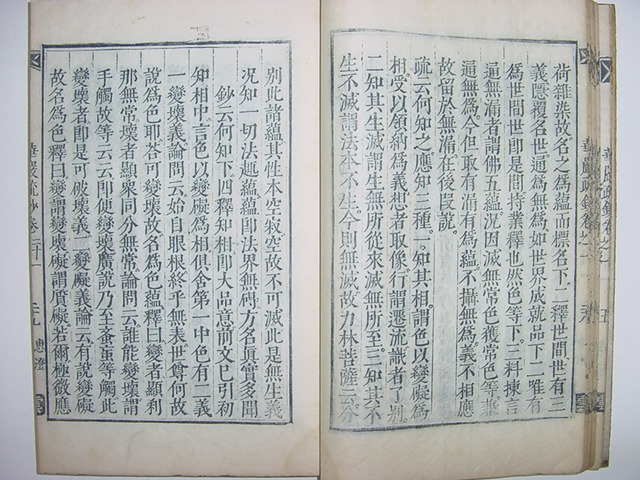 荷雜染故名之為蘊而標名下二釋世間世有三
義隱覆名世遍為無如世界成就品下二唯有
為世間世即是間持業釋也然色等下三料揀言
遍無漏者謂佛五蘊況因滅無常色獲常色等兼
無為今但取有漏有為蘊不攝無為義不相應
故留於無漏在後旻說
疏云何知之應知三種一知其相謂色以變礙為
相受以領納為義想者取像行謂遷流識者了別
二知其生滅謂無所從來滅無所至三知其不
生不滅謂法本不生今則無滅故力林菩薩云分
別此諸蘊其性本空寂空故不可滅此是無生義
況知一切法趣蘊蘊即法界無碍方名眞實多聞
鈔云何知下四釋知相即大品意前文已引初
知相中言色以變礙為相俱舍第一中色有二義
一變壞義論問云如始自眼根終乎無表世尊何故
說為色耶荅可變壞故名為色蘊釋曰變者顯刹
那無常壞者顯衆同分無常論問云誰能變壞謂
手觸故等云云即便變壞廣說乃至蚤蝨等觸此
變壞者即是可破壞義二變礙義論云有說變礙
故名為色釋曰變謂變壞礙謂質礙若爾極微應
華嚴疏鈔卷二十一
九